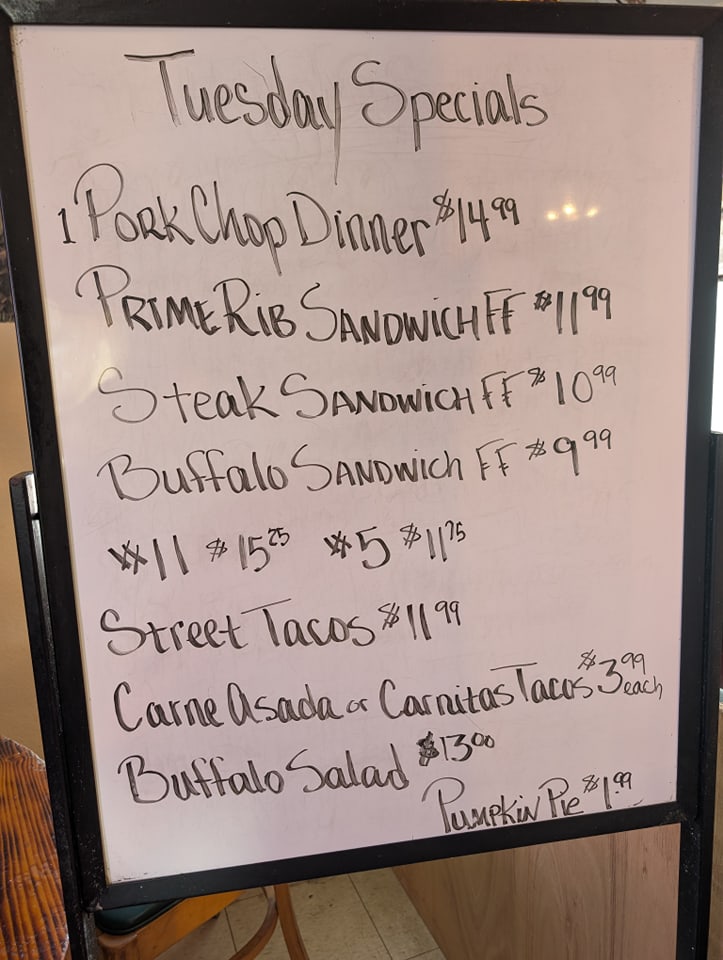 Tuesday Specials
1 Pork Chop Dinner $14.99
Prime Rib Sandwich FF $11.99
Steak Sandwich FF $10.99
Buffalo Sandwich FF $9.99
#11 $15.25 #5 $11.75
Street Tacos $11.99
Carne Asada or Carnitas Tacos $3.99 each
Buffalo Salad $13.00
Pumpkin Pie $1.99